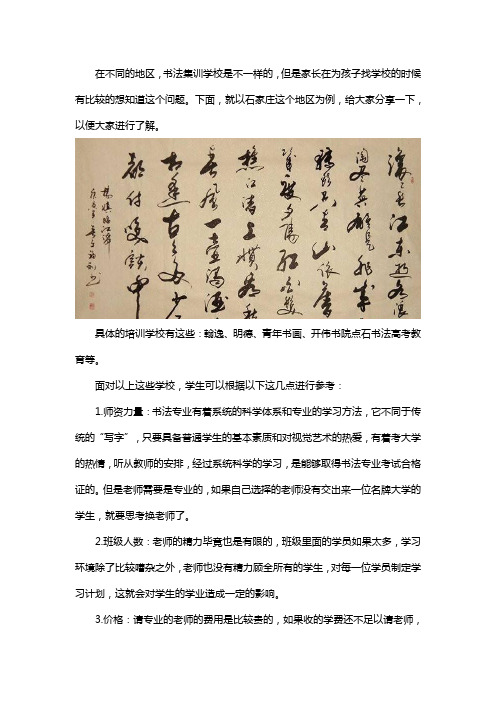 在不同的地区，书法集训学校是不一样的，但是家长在为孩子找学校的时候
有比较的想知道这个问题。下面，就以石家庄这个地区为例，给大家分享一下，
以便大家进行了解。
滚滚长江东逝水浪
淘尽英雄是非成
转头空青山依旧
度夕阳红白发
樵江渚上惯看秋
春风一壶浊酒
相逢古今多少
都付笑谈中
杨慎临江仙
具体的培训学校有这些：翰逸、明德、青年书画、开伟书院点石书法高考教
育等。
面对以上这些学校，学生可以根据以下这几点进行参考：
1.师资力量：书法专业有着系统的科学体系和专业的学习方法，它不同于传
统的“写字”，只要具备普通学生的基本素质和对视觉艺术的热爱，有着考大学
的热情，听从教师的安排，经过系统科学的学习，是能够取得书法专业考试合格
证的。但是老师需要是专业的，如果自己选择的老师没有交出来一位名牌大学的
学生，就要思考换老师了。
2.班级人数：老师的精力毕竟也是有限的，班级里面的学员如果太多，学习
环境除了比较嘈杂之外，老师也没有精力顾全所有的学生，对每一位学员制定学
习计划，这就会对学生的学业造成一定的影响。
3.价格：请专业的老师的费用是比较贵的，如果收的学费还不足以请老师，